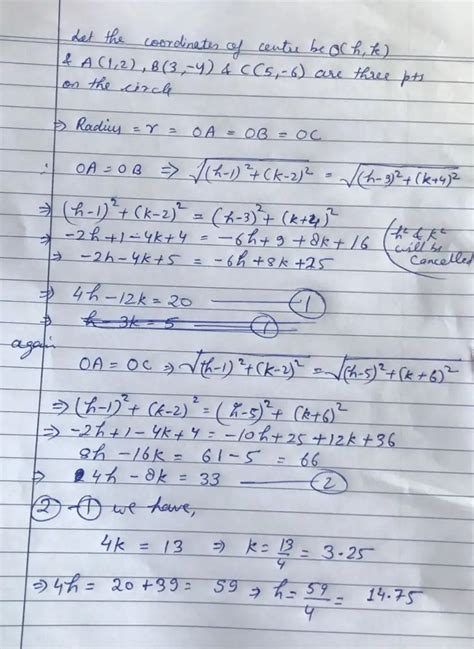 Let the coordinates of centre be O(h, k)
& A(1,2), B(3,-4) & C(5,-6) are three pts
on the circle
⇒ Radius = r = OA = OB = OC
∴ OA = OB ⇒ √((h-1)² + (k-2)²) = √((h-3)² + (k+4)²)
⇒ (h-1)² + (k-2)² = (h-3)² + (k+4)²
(h² & k² will be cancelled
⇒ -2h+1-4k+4 = -6h+9+8k+16
⇒ -2h-4k+5 = -6h+8k+25
⇒ 4h-12k = 20 — ①
⇒ h-3k = 5 — ①
again
OA = OC ⇒ √((h-1)² + (k-2)²) = √((h-5)² + (k+6)²)
⇒ (h-1)² + (k-2)² = (h-5)² + (k+6)²
⇒ -2h+1-4k+4 = -10h+25+12k+36
8h-16k = 61-5 = 66
⇒ 4h-8k = 33 — ②
② - ① we have,
4k = 13 ⇒ k = 13/4 = 3.25
⇒ 4h = 20+39 = 59 ⇒ h = 59/4 = 14.75